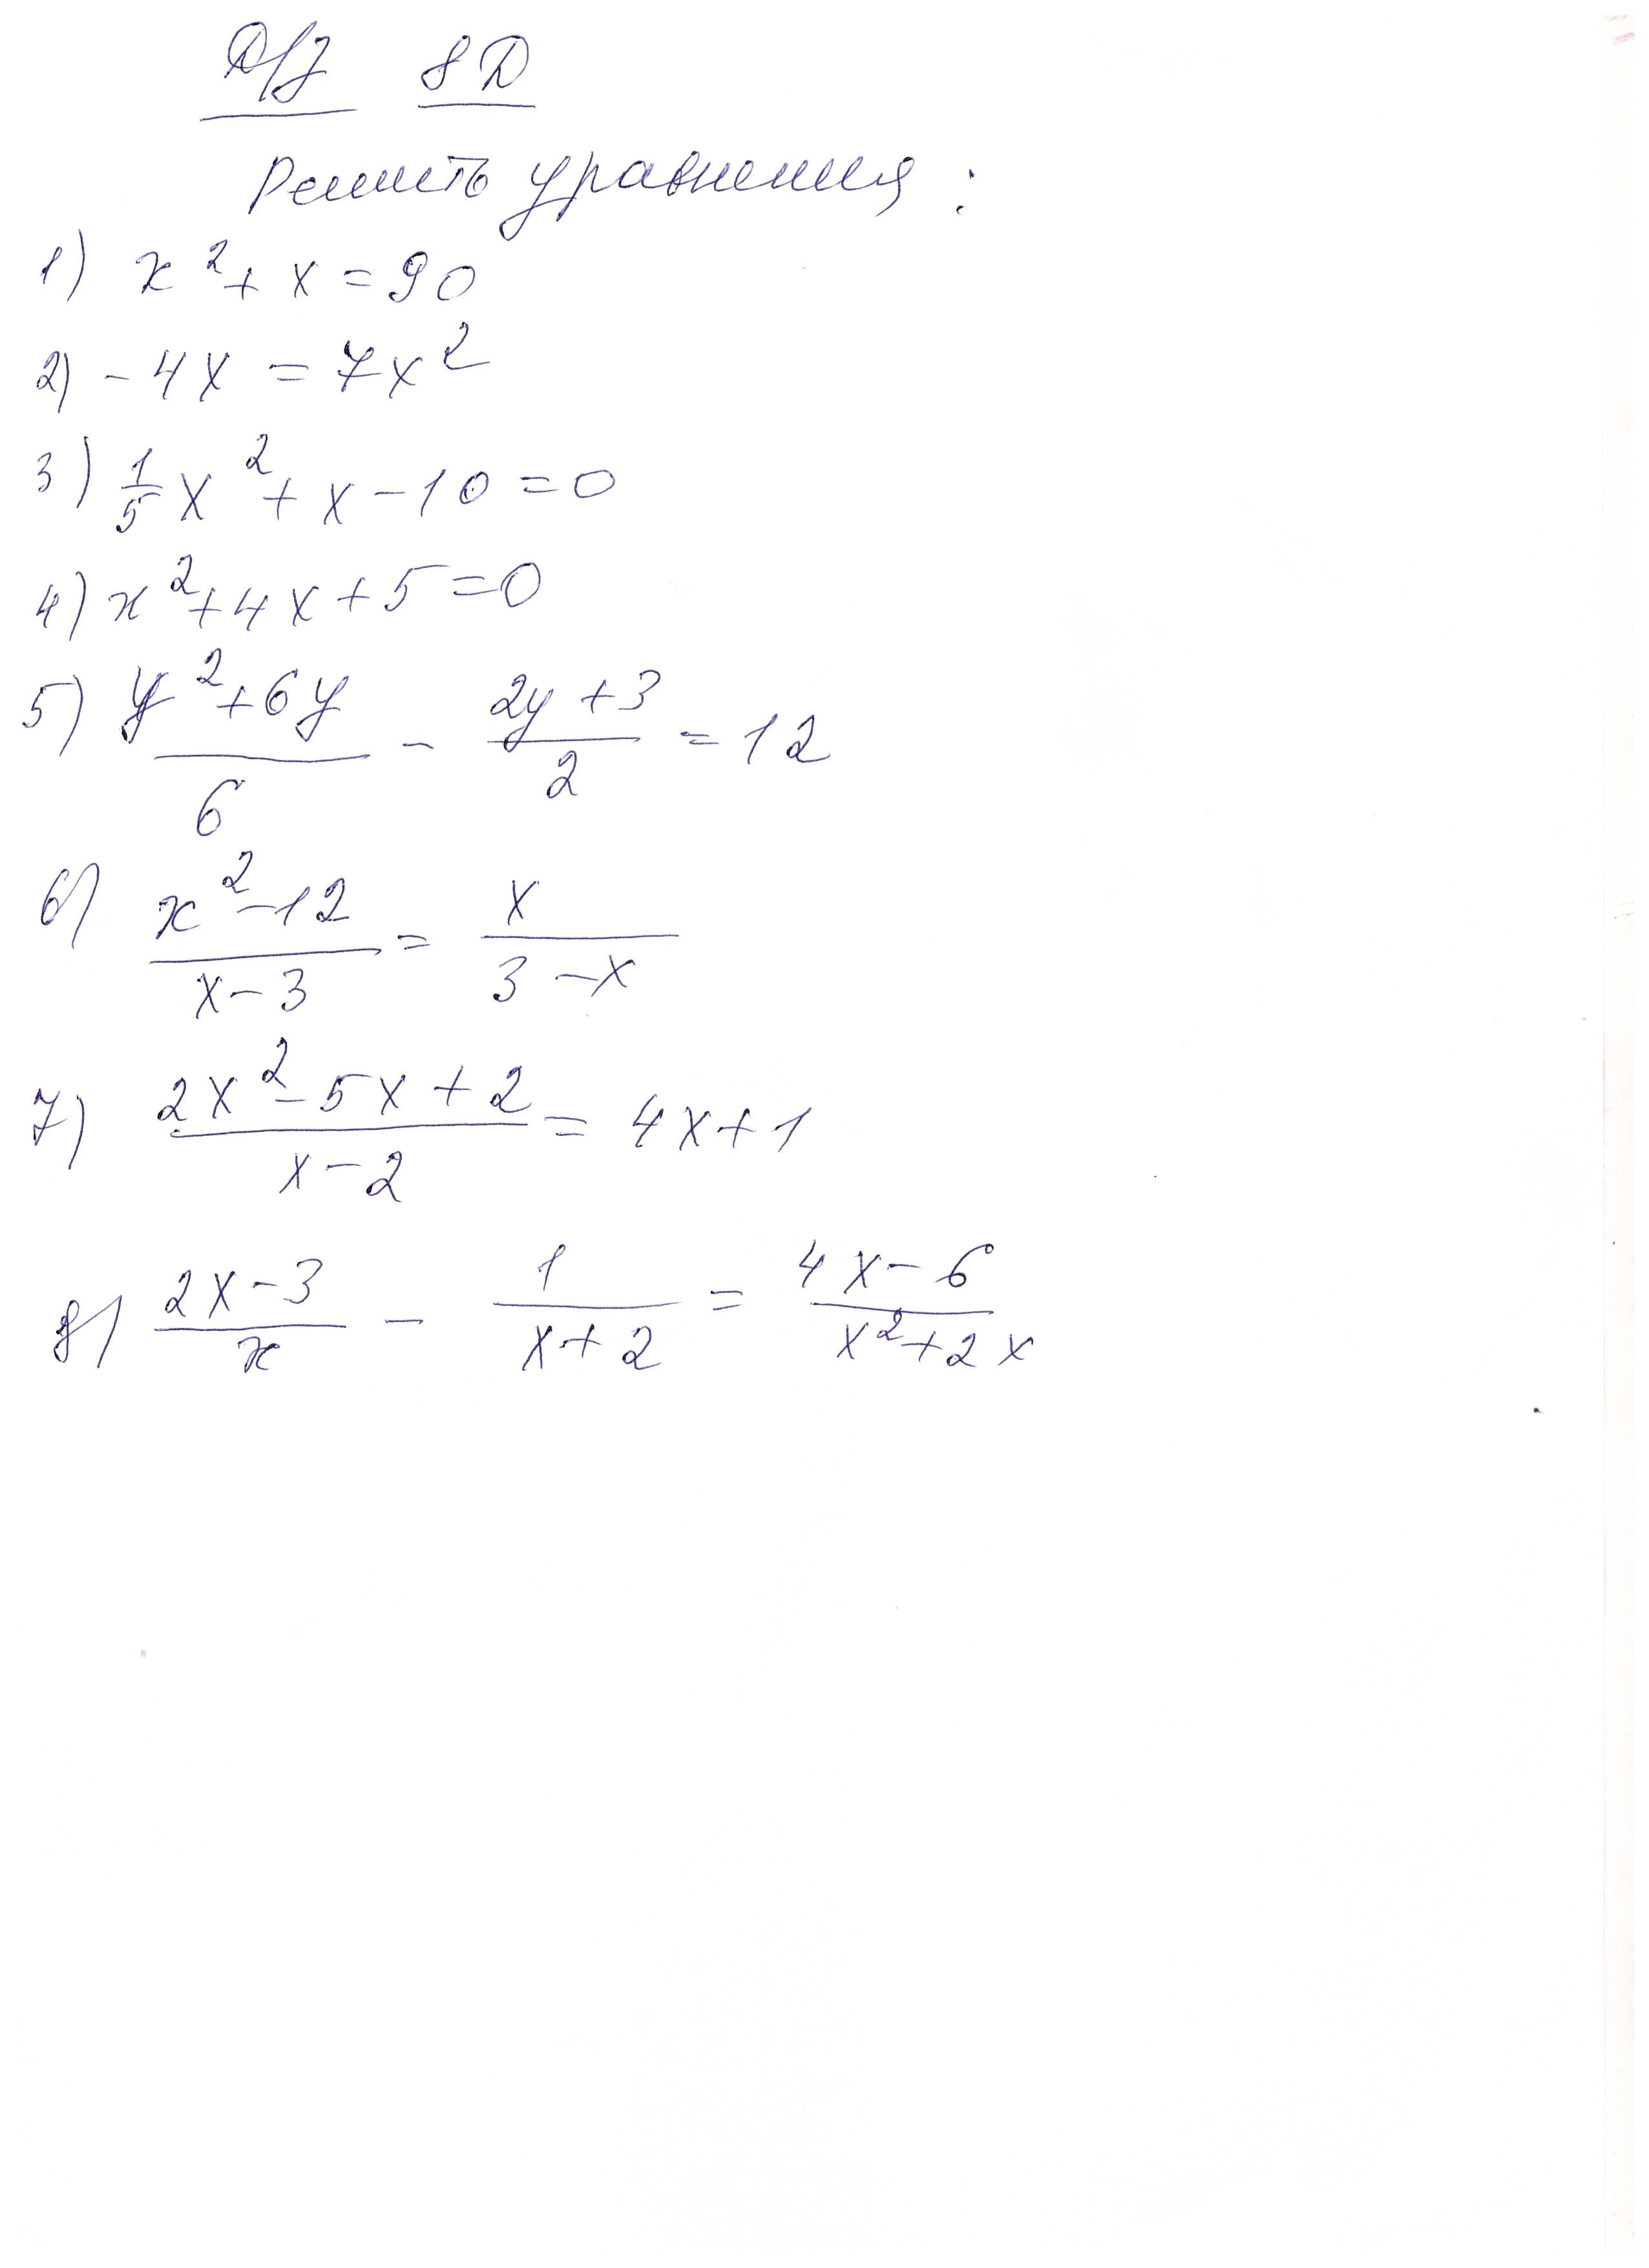 Д/З 8Д
Решить уравнения:
1) x² + x = 90
2) - 4x = 7x²
3) 1/5 x² + x - 10 = 0
4) x² + 4x + 5 = 0
5) (y² + 6y)/6 - (2y + 3)/2 = 12
6) (x² - 12)/(x - 3) = x/(3 - x)
7) (2x² - 5x + 2)/(x - 2) = 4x + 1
8) (2x - 3)/x - 1/(x + 2) = (4x - 6)/(x² + 2x)